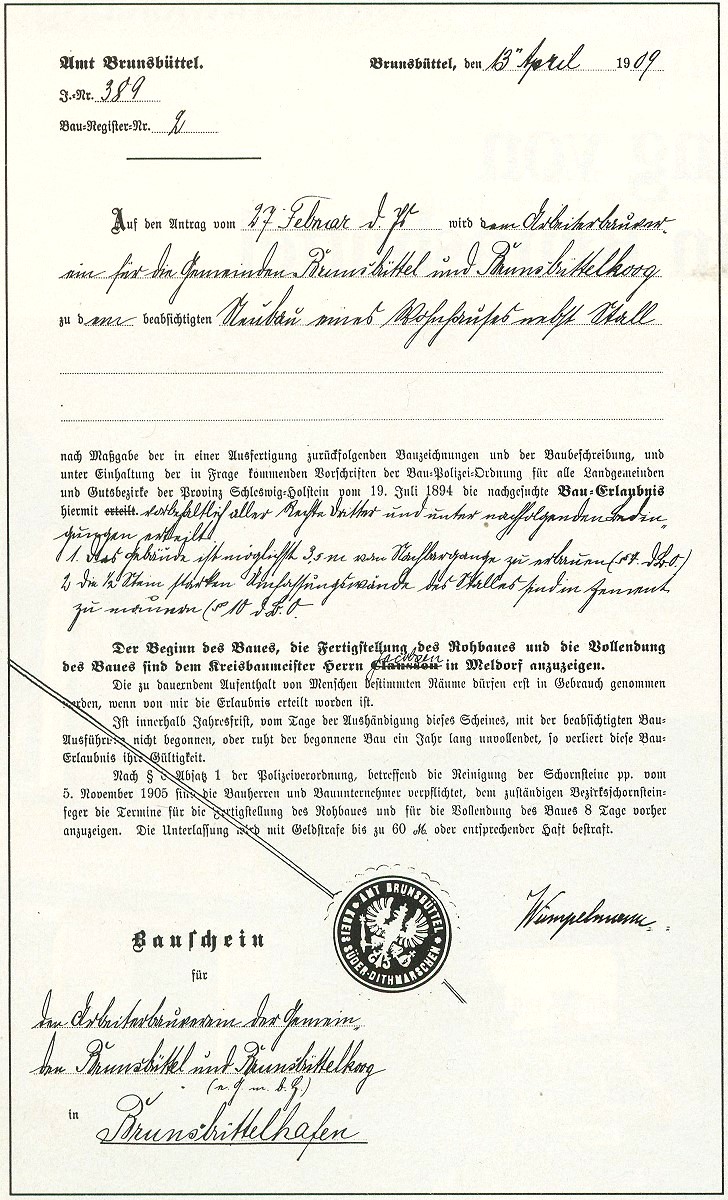 Amt Brunsbüttel.
Brunsbüttel, den 13ⁿ April 1909
J.-Nr. 389
Bau-Register-Nr. 2
Auf den Antrag vom 27 Februar d. Js wird dem Arbeiterbauver-
ein für die Gemeinden Brunsbüttel und Brunsbüttelkoog
zu dem beabsichtigten Neubau eines Wohnhauses nebst Stall
nach Maßgabe der in einer Ausfertigung zurückfolgenden Bauzeichnungen und der Baubeschreibung, und
unter Einhaltung der in Frage kommenden Vorschriften der Bau-Polizei-Ordnung für alle Landgemeinden
und Gutsbezirke der Provinz Schleswig-Holstein vom 19. Juli 1894 die nachgesuchte Bau-Erlaubnis
hiermit erteilt. vorbehaltlich aller Rechte Dritter und unter nachfolgenden Bedin-
gungen erteilt
1. Das Gebäude ist möglichst 3,5 m vom Nachbargange zu erbauen (§ 7. d.B.O.)
2 die ½ Stein starken Umfassungswände des Stalles sind in Zement
zu mauern (§ 10 d.B.O.
Der Beginn des Baues, die Fertigstellung des Rohbaues und die Vollendung
des Baues sind dem Kreisbaumeister Herrn Claussen Jacobsen in Meldorf anzuzeigen.
Die zu dauerndem Aufenthalt von Menschen bestimmten Räume dürfen erst in Gebrauch genommen
werden, wenn von mir die Erlaubnis erteilt worden ist.
Ist innerhalb Jahresfrist, vom Tage der Aushändigung dieses Scheines, mit der beabsichtigten Bau-
Ausführung nicht begonnen, oder ruht der begonnene Bau ein Jahr lang unvollendet, so verliert diese Bau-
Erlaubnis ihre Gültigkeit.
Nach § Absatz 1 der Polizeiverordnung, betreffend die Reinigung der Schornsteine pp. vom
5. November 1905 sind die Bauherren und Bauunternehmer verpflichtet, dem zuständigen Bezirksschornstein-
feger die Termine für die Fertigstellung des Rohbaues und für die Vollendung des Baues 8 Tage vorher
anzuzeigen. Die Unterlassung wird mit Geldstrafe bis zu 60 ℳ oder entsprechender Haft bestraft.
AMT BRUNSBÜTTEL
KREIS SÜDER-DITHMARSCHEN
Wümpelmann
Bauschein
für
den Arbeiterbauverein der Gemein-
den Brunsbüttel und Brunsbüttelkoog
(e. G m. b. H.)
in Brunsbüttelhafen